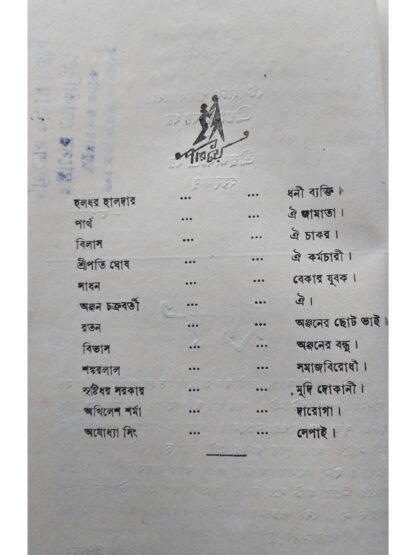 পরিচয়
হলধর হালদার ... ... ধনী ব্যক্তি।
পার্থ ... ... ঐ জামাতা।
বিলাস ... ... ঐ চাকর।
শ্রীপতি ঘোষ ... ... ঐ কর্মচারী।
সাধন ... ... বেকার যুবক।
অঞ্জন চক্রবর্তী ... ... ঐ।
রতন ... ... অঞ্জনের ছোট ভাই।
বিভাস ... ... অঞ্জনের বন্ধু।
শঙ্করলাল ... ... সমাজবিরোধী।
সৃষ্টিধর সরকার ... ... মুদি দোকানী।
অখিলেশ শর্মা ... ... দারোগা।
অযোধ্যা সিং ... ... সেপাই।